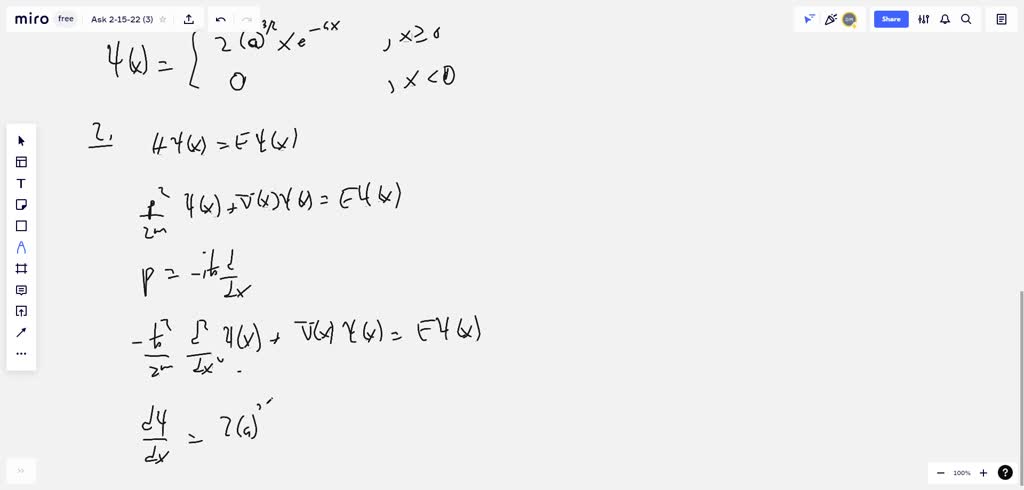 miro free Ask 2-15-22 (3) Share
ψ(x) = { 2(a)^{3/2} x e^{-ax} , x ≥ 0
0 , x < 0
2.
Hψ(x) = Eψ(x)
p²/2m ψ(x) + V(x)ψ(x) = Eψ(x)
p = -iħ d/dx
-ħ²/2m d²/dx² ψ(x) + V(x)ψ(x) = Eψ(x)
dψ/dx = 2(a)
- 100% + ?